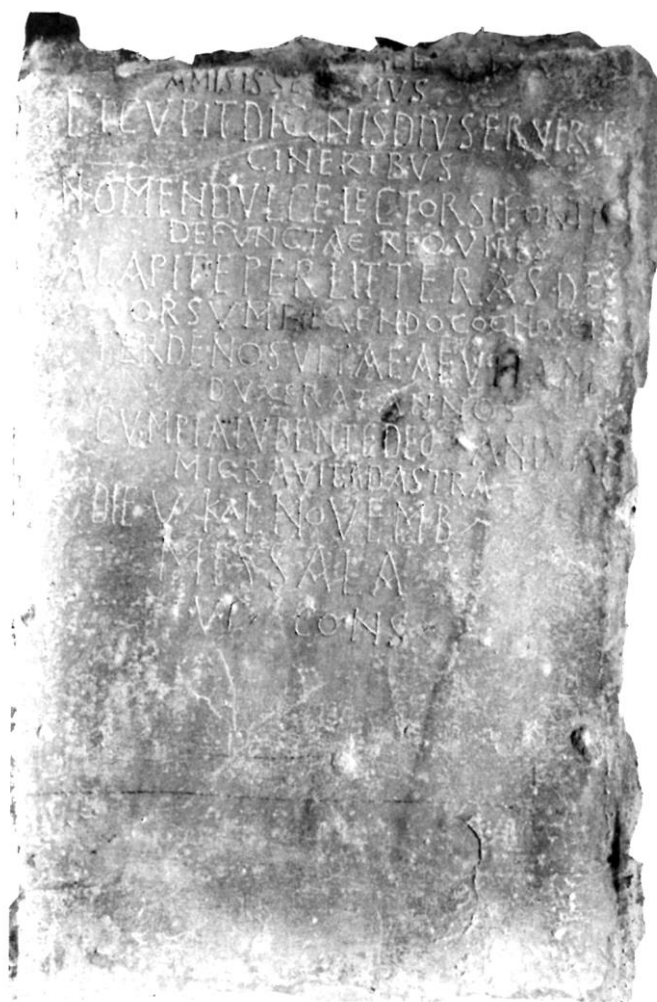 ET CVPIT DIGNIS DIV SERVIRE
CINERIBVS
NOMEN DVLCE LECTOR SI FORTE
DEFVNCTAE REQVIRES
A CAPITE PER LITTERAS DE
ORSVM LEGENDO COGNOSCIS
TERDENOS VITAE
DVXERAT ANNOS
CVM PIA IVBENTE DEO ANIMA
MIGRAVIT AD ASTRA
DIE V KAL NOVEMB
MESSALA
VC CONS